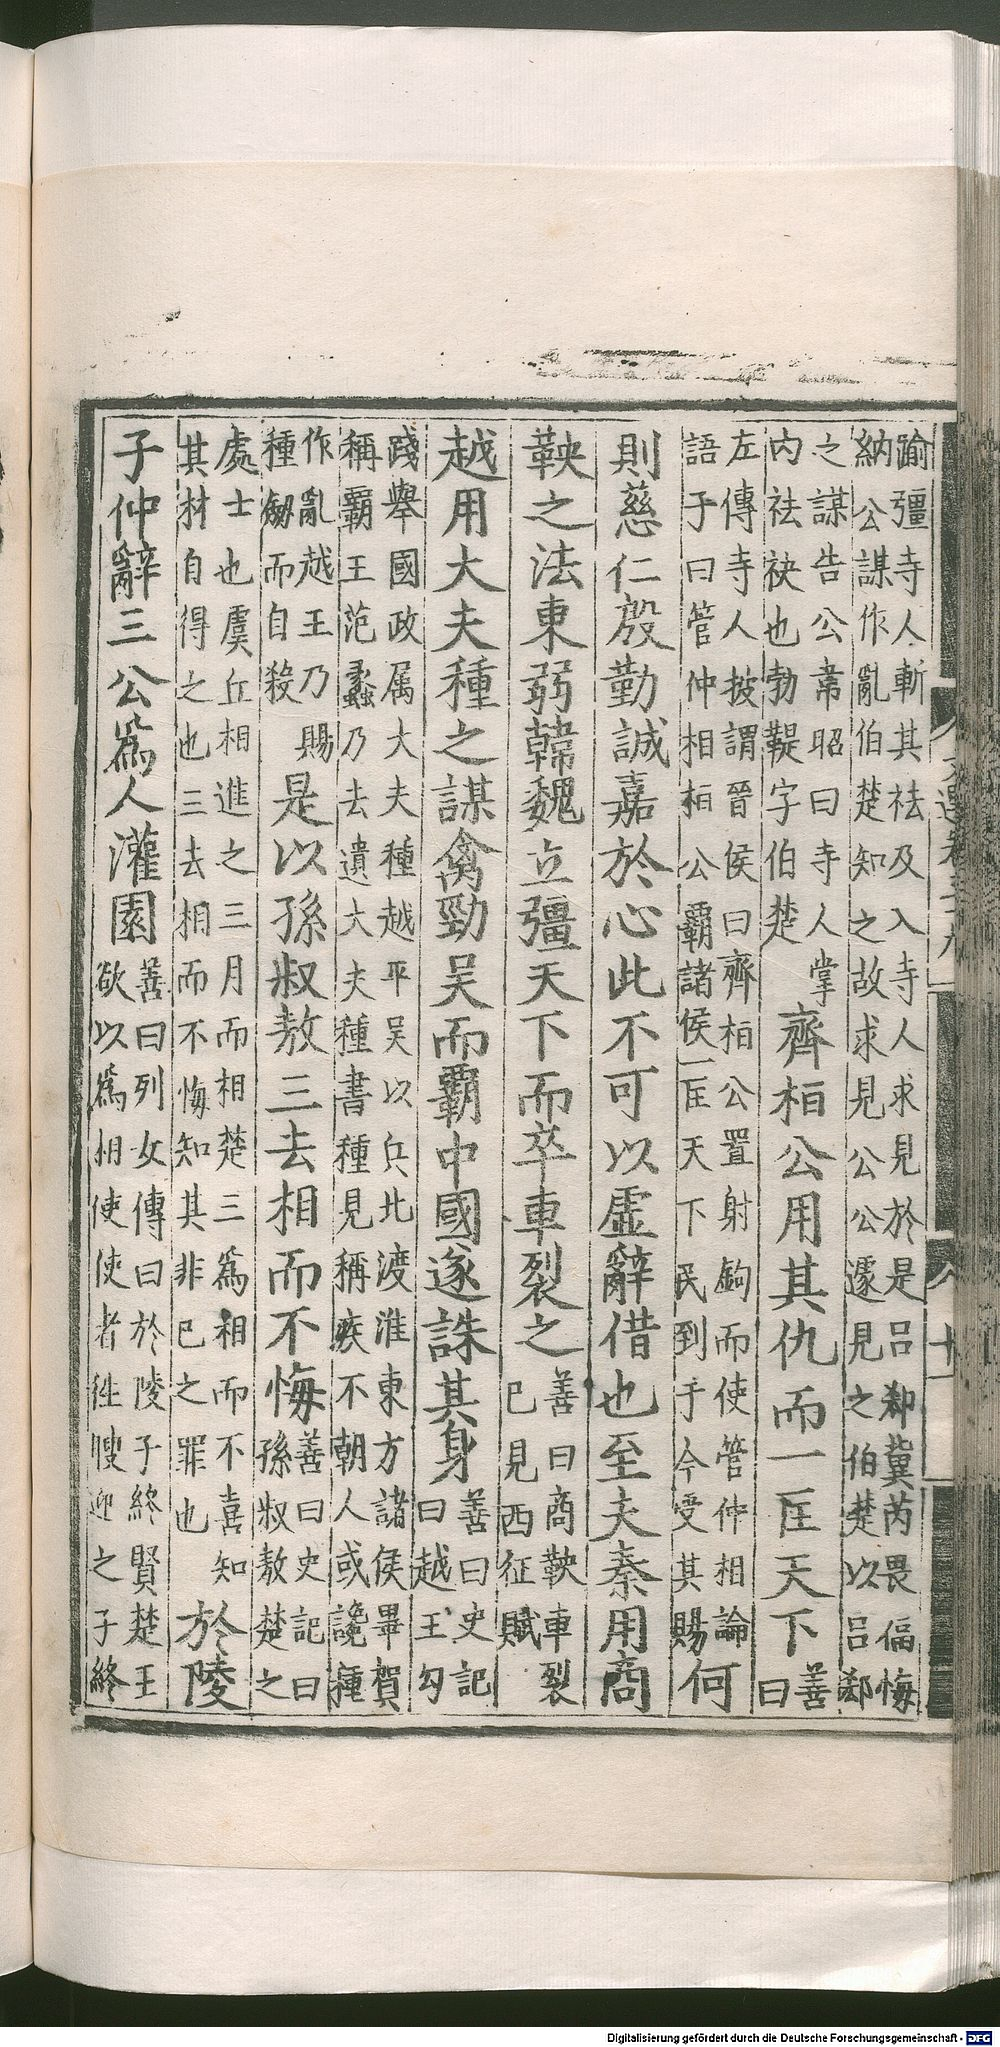 文選卷三十九
十一
踰彊寺人斬其袪及入寺人求見於是呂郤冀芮畏偪悔
納公謀作亂伯楚知之故求見公公遽見之伯楚以呂郤
之謀告公韋昭曰寺人掌
內袪袂也勃鞮字伯楚
齊桓公用其仇而一匡天下
善
曰
左傳寺人披謂晉侯曰齊桓公置射鉤而使管仲相論
語子曰管仲相桓公霸諸侯一匡天下民到于今受其賜
何
則慈仁殷勤誠嘉於心此不可以虛辭借也至夫秦用商
鞅之法東弱韓魏立彊天下而卒車裂之
善曰商鞅車裂
已見西征賦
越用大夫種之謀禽勁吳而霸中國遂誅其身
善曰史記
曰越王勾
踐舉國政属大夫種越平吳以兵北渡淮東方諸侯畢賀
稱霸王范蠡乃去遺大夫種書種見稱疾不朝人或讒種
作亂越王乃賜
種劒而自殺
是以孫叔敖三去相而不悔
善曰史記曰
孫叔敖楚之
處士也虞丘相進之三月而相楚三爲相而不喜知
其材自得之也三去相而不悔知其非已之罪也
於陵
子仲辭三公爲人灌園
善曰列女傳曰於陵子終賢楚王
欲以爲相使使者往聘迎之子終
Digitalisierung gefördert durch die Deutsche Forschungsgemeinschaft - DFG